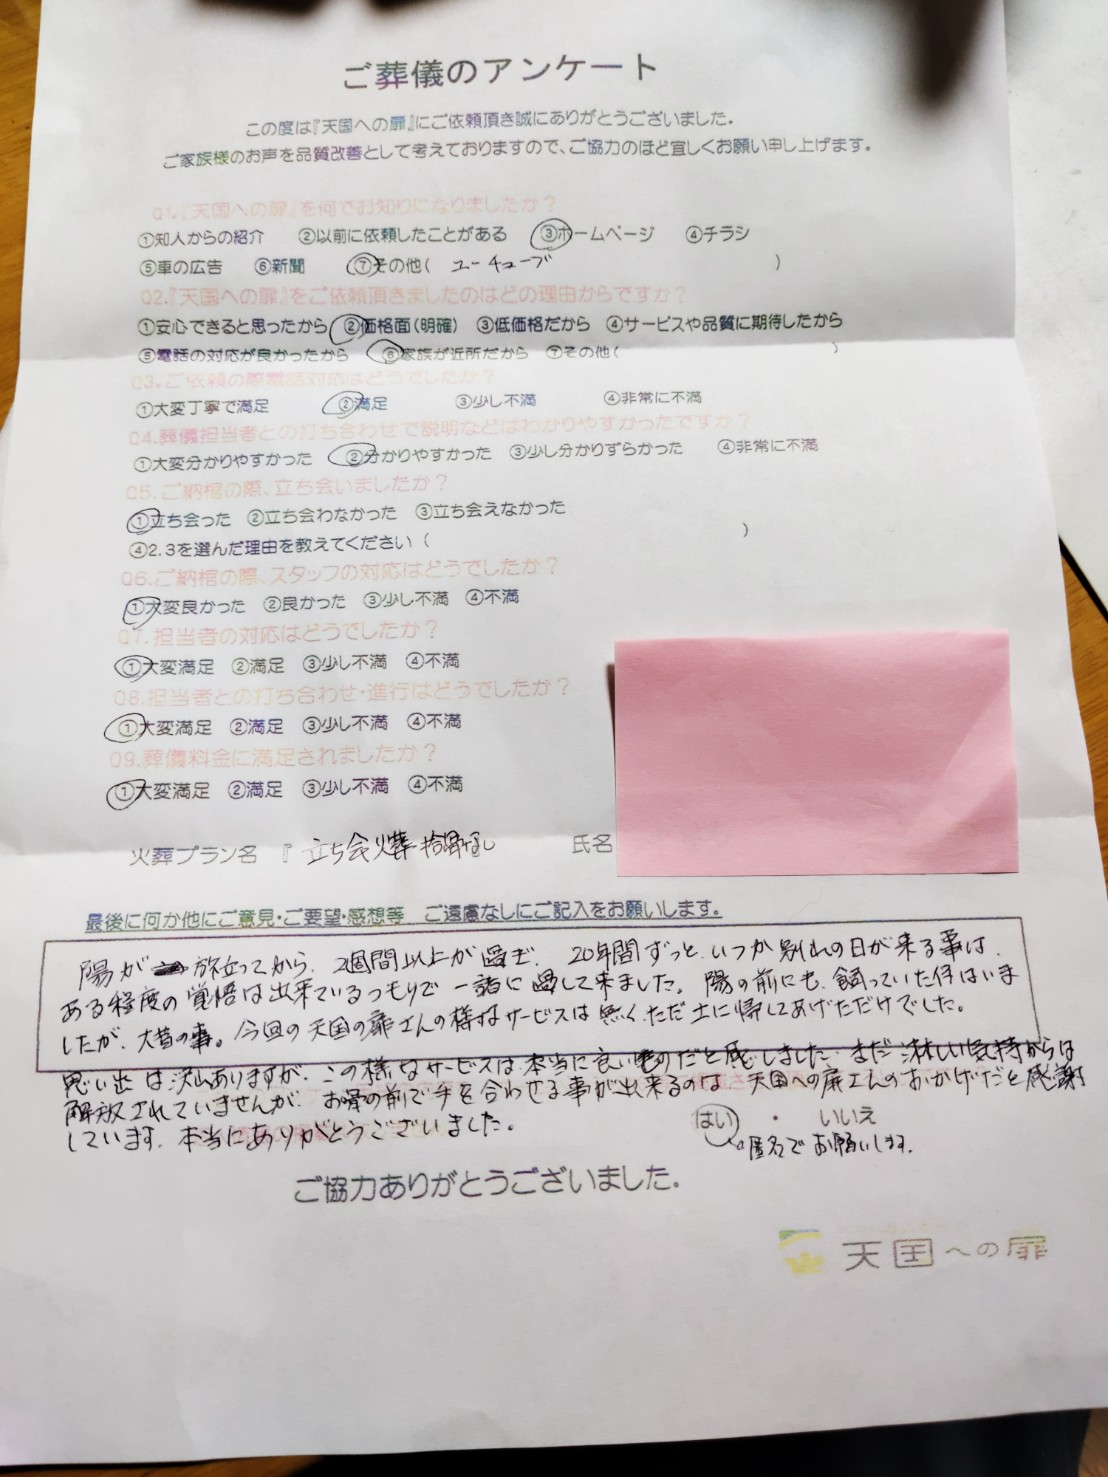 ご葬儀のアンケート
この度は『天国への扉』にご依頼頂き誠にありがとうございました。
ご家族様のお声を品質改善として考えておりますので、ご協力のほど宜しくお願い申し上げます。
Q1.『天国への扉』を何でお知りになりましたか？
①知人からの紹介 ②以前に依頼したことがある ③ホームページ ④チラシ
⑤車の広告 ⑥新聞 ⑦その他( ユーチューブ )
Q2.『天国への扉』をご依頼頂きましたのはどの理由からですか？
①安心できると思ったから ②価格面(明確) ③低価格だから ④サービスや品質に期待したから
⑤電話の対応が良かったから ⑥家族が近所だから ⑦その他( )
Q3.ご依頼の際電話対応はどうでしたか？
①大変丁寧で満足 ②満足 ③少し不満 ④非常に不満
Q4.葬儀担当者との打ち合わせで説明などはわかりやすかったですか？
①大変分かりやすかった ②分かりやすかった ③少し分かりずらかった ④非常に不満
Q5.ご納棺の際、立ち会いましたか？
①立ち会った ②立ち会わなかった ③立ち会えなかった
④2.3を選んだ理由を教えてください( )
Q6.ご納棺の際、スタッフの対応はどうでしたか？
①大変良かった ②良かった ③少し不満 ④不満
Q7.担当者の対応はどうでしたか？
①大変満足 ②満足 ③少し不満 ④不満
Q8.担当者との打ち合わせ・進行はどうでしたか？
①大変満足 ②満足 ③少し不満 ④不満
Q9.葬儀料金に満足されましたか？
①大変満足 ②満足 ③少し不満 ④不満
火葬プラン名 『 立ち会火葬 拾骨なし 氏名
最後に何か他にご意見・ご要望・感想等 ご遠慮なしにご記入をお願いします。
陽が 旅立ってから、2週間以上が過ぎ、20年間ずっと、いつか別れの日が来る事は、
ある程度の覚悟は出来ているつもりで 一緒に過して来ました。陽の前にも、飼っていた仔はいま
したが、大昔の事。今回の天国の扉さんの様なサービスは無く、ただ土に帰してあげただけでした。
思い出は沢山ありますが、この様なサービスは、本当に良いものだと感じました。まだ淋しい気持からは
解放されていませんが、お骨の前で手を合わせる事が出来るのは 天国への扉さんのおかげだと感謝
しています。本当にありがとうございました。
はい ・ いいえ
匿名でお願いします。
ご協力ありがとうございました。
天国への扉